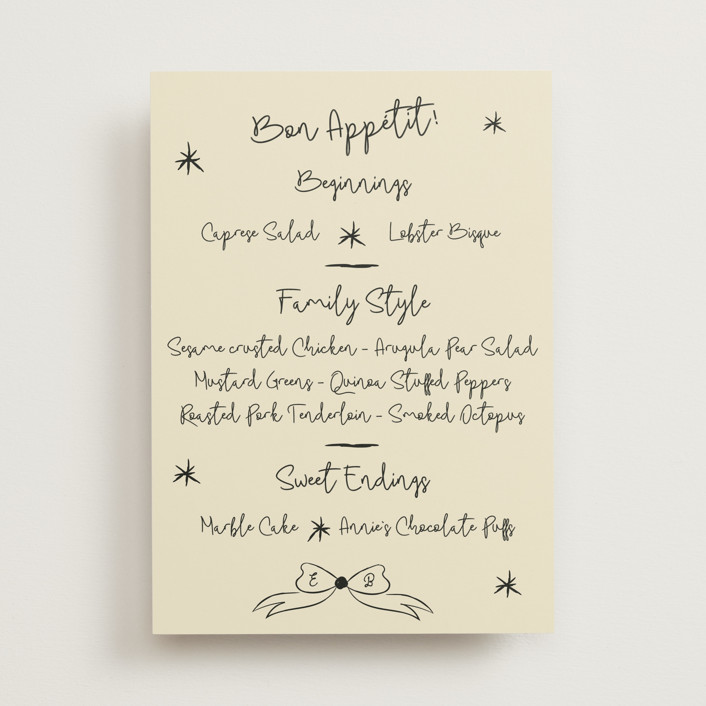 Bon Appétit!
Beginnings
Caprese Salad Lobster Bisque
Family Style
Sesame crusted Chicken - Arugula Pear Salad
Mustard Greens - Quinoa Stuffed Peppers
Roasted Pork Tenderloin - Smoked Octopus
Sweet Endings
Marble Cake Annie's Chocolate Puffs
E B